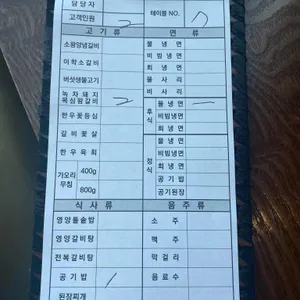 담 당 자
고객인원 2 테이블 NO. 7
고 기 류 면 류
소왕양념갈비 물 냉 면
미 학 소 갈 비 비 빔 냉 면
버섯생불고기 회 냉 면
녹 차 돼 지 물 사 리
욕심왕갈비 2 비 사 리
한우꽃등심 후식 물 냉 면 一
갈 비 꽃 살 비빔냉면
한 우 육 회 회 냉 면
가오리무침 400g 정식 물 냉 면
비빔냉면
회 냉 면
800g 공 기 밥
공기된장
식 사 류 음 주 류
영양돌솥밥 소 주
영양갈비탕 맥 주
전복갈비탕 막 걸 리
공 기 밥 / 음 료 수
된장찌개